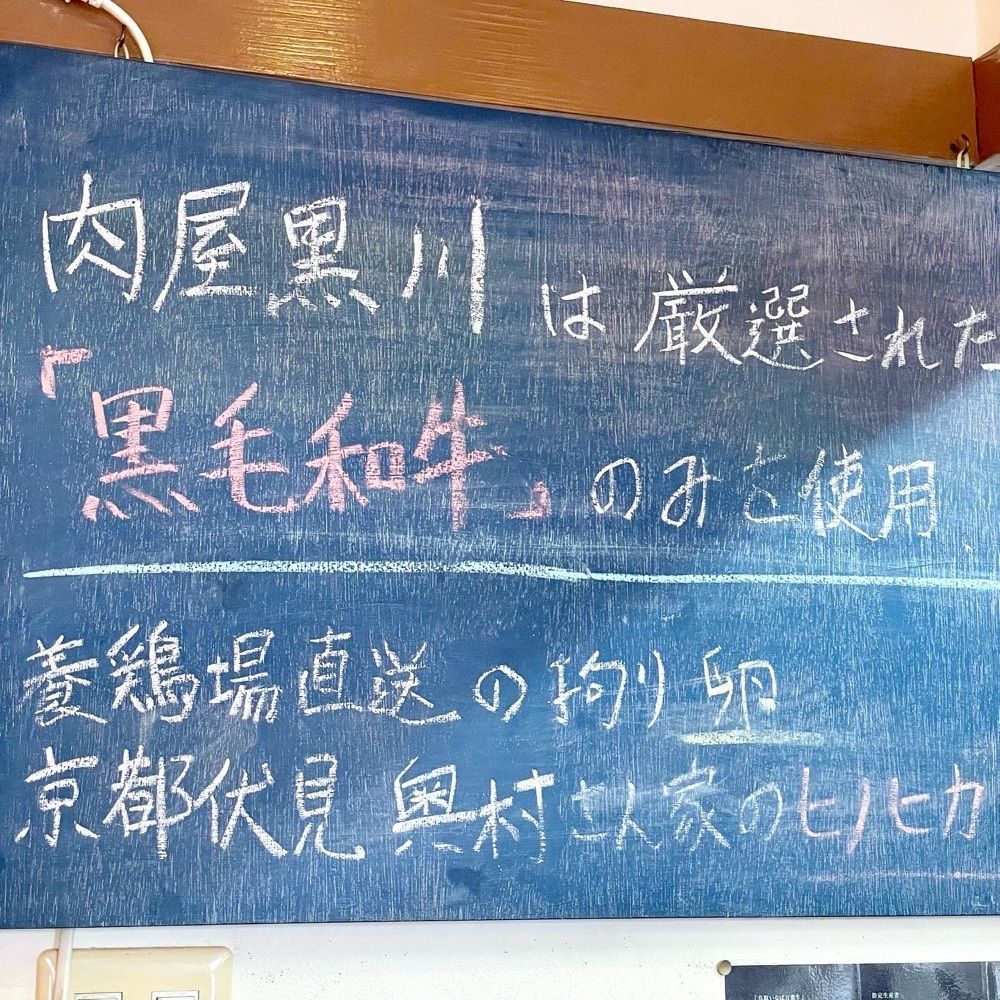 肉屋黒川は厳選された
「黒毛和牛」のみを使用
養鶏場直送の拘り卵
京都伏見 奥村さん家のヒノヒカ
指定生産者